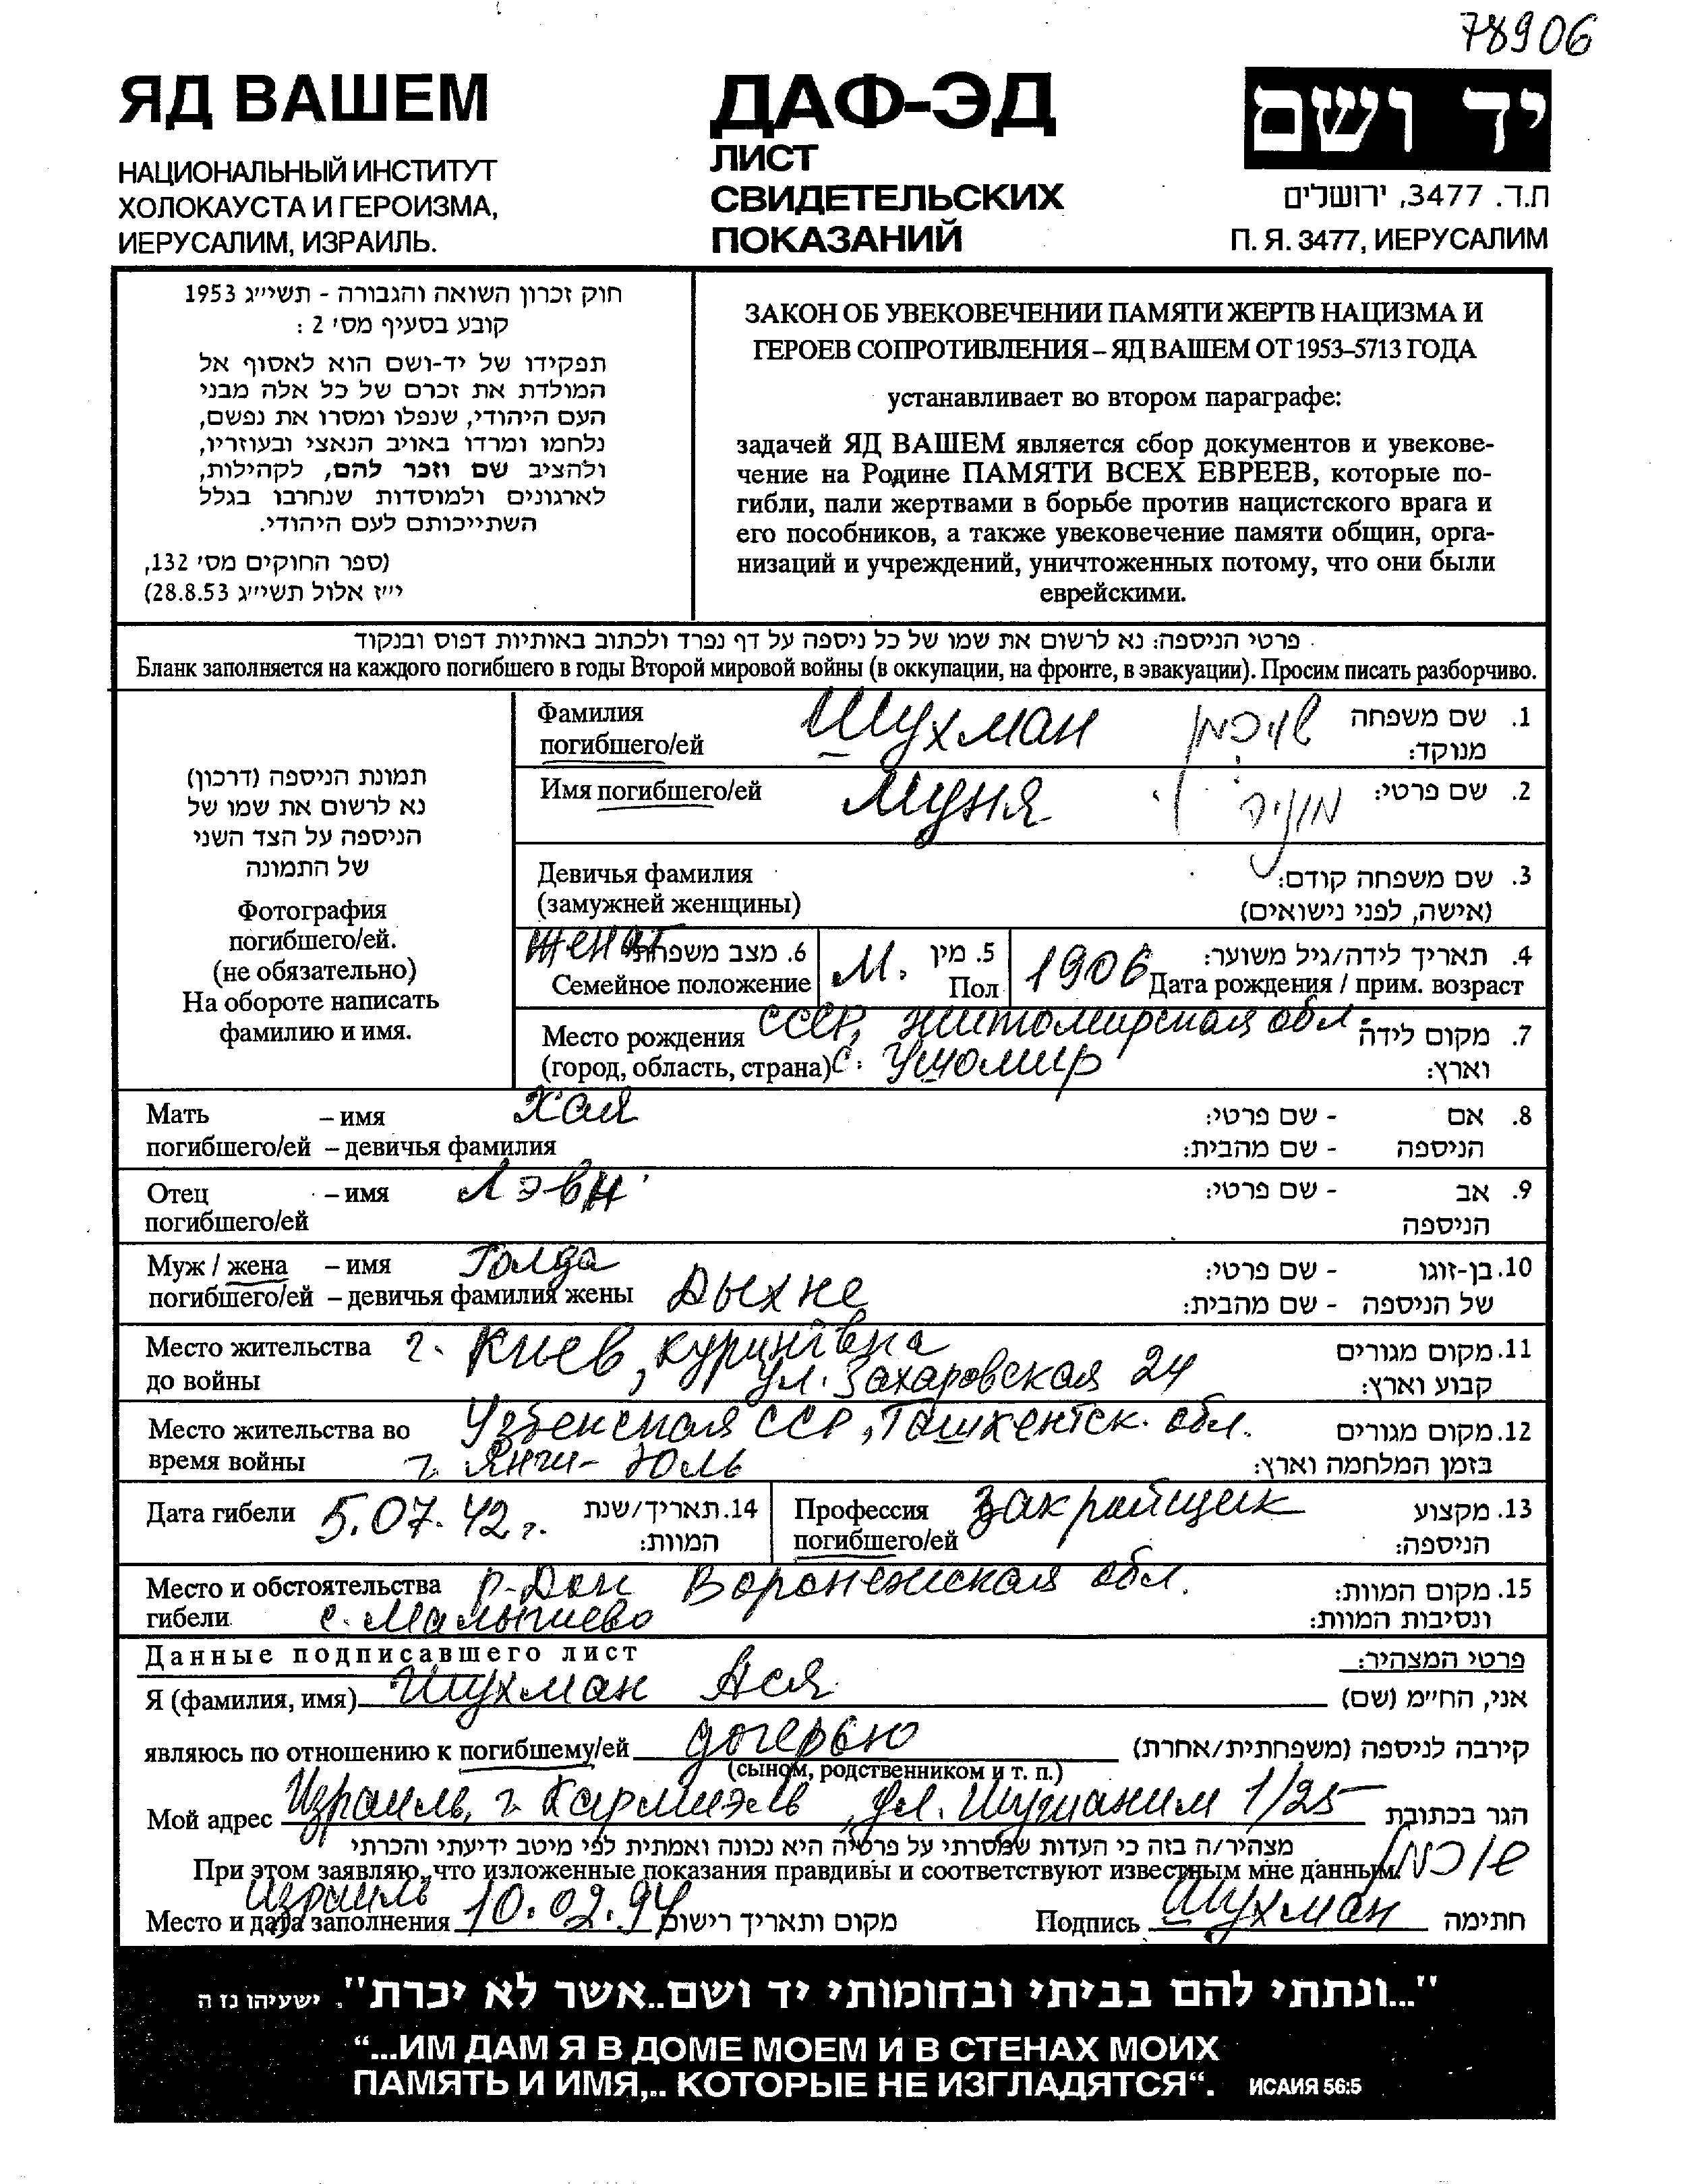 78906
ЯД ВАШЕМ
НАЦИОНАЛЬНЫЙ ИНСТИТУТ
ХОЛОКАУСТА И ГЕРОИЗМА,
ИЕРУСАЛИМ, ИЗРАИЛЬ.
ДАФ-ЭД
ЛИСТ
СВИДЕТЕЛЬСКИХ
ПОКАЗАНИЙ
יד ושם
ת.ד. 3477, ירושלים
П. Я. 3477, ИЕРУСАЛИМ
חוק זכרון השואה והגבורה - תשי״ג 1953
קובע בסעיף מס׳ 2 :
תפקידו של יד-ושם הוא לאסוף אל
המולדת את זכרם של כל אלה מבני
העם היהודי, שנפלו ומסרו את נפשם,
נלחמו ומרדו באויב הנאצי ובעוזריו,
ולהציב שם וזכר להם, לקהילות,
לארגונים ולמוסדות שנחרבו בגלל
השתייכותם לעם היהודי.
(ספר החוקים מס׳ 132,
י״ז אלול תשי״ג 28.8.53)
ЗАКОН ОБ УВЕКОВЕЧЕНИИ ПАМЯТИ ЖЕРТВ НАЦИЗМА И
ГЕРОЕВ СОПРОТИВЛЕНИЯ – ЯД ВАШЕМ ОТ 1953–5713 ГОДА
устанавливает во втором параграфе:
задачей ЯД ВАШЕМ является сбор документов и увекове-
чение на Родине ПАМЯТИ ВСЕХ ЕВРЕЕВ, которые по-
гибли, пали жертвами в борьбе против нацистского врага и
его пособников, а также увековечение памяти общин, орга-
низаций и учреждений, уничтоженных потому, что они были
еврейскими.
פרטי הניספה: נא לרשום את שמו של כל ניספה על דף נפרד ולכתוב באותיות דפוס ובנקוד
Бланк заполняется на каждого погибшего в годы Второй мировой войны (в оккупации, на фронте, в эвакуации). Просим писать разборчиво.
תמונת הניספה (דרכון)
נא לרשום את שמו של
הניספה על הצד השני
של התמונה
Фотография
погибшего/ей.
(не обязательно)
На обороте написать
фамилию и имя.
Фамилия Шухман שוכמן 1. שם משפחה
погибшего/ей מנוקד:
Имя погибшего/ей Муня מוניה 2. שם פרטי:
Девичья фамилия 3. שם משפחה קודם:
(замужней женщины) (אישה, לפני נישואים)
женат 6. מצב משפחתי М. 5. מין 1906 4. תאריך לידה/גיל משוער:
Семейное положение Пол Дата рождения / прим. возраст
Место рождения СССР, Житомирская обл. 7. מקום לידה
(город, область, страна) с. Ушомир וארץ:
Мать – имя Хая 8. אם - שם פרטי:
погибшего/ей – девичья фамилия הניספה - שם מהבית:
Отец – имя Лэви 9. אב - שם פרטי:
погибшего/ей הניספה
Муж / жена – имя Голда 10. בן-זוגו - שם פרטי:
погибшего/ей – девичья фамилия жены Дыхне של הניספה - שם מהבית:
Место жительства г. Киев, 11. מקום מגורים
до войны ул. Захаровская 24 קבוע וארץ:
Место жительства во Узбекская ССР, Ташкентск. обл. 12. מקום מגורים
время войны г. Янги-Юль בזמן המלחמה וארץ:
Дата гибели 5.07.42 г. 14. תאריך/שנת המוות:
Профессия Закройщик 13. מקצוע
погибшего/ей הניספה:
Место и обстоятельства р-Дон Воронежская обл. 15. מקום המוות:
гибели с. Малышево ונסיבות המוות:
Данные подписавшего лист פרטי המצהיר:
Я (фамилия, имя) Шухман Ася אני, הח״מ (שם)
являюсь по отношению к погибшему/ей дочерью קירבה לניספה (משפחתית/אחרת)
(сыном, родственником и т. п.)
Мой адрес Израиль, г. Кармиэль, ул. 1/25 הגר בכתובת
מצהיר/ה בזה כי העדות שמסרתי על פרטיה היא נכונה ואמתית לפי מיטב ידיעתי והכרתי
При этом заявляю, что изложенные показания правдивы и соответствуют известным мне данным. שוכמן
Израиль
Место и дата заполнения 10.02.94 מקום ותאריך רישום Подпись Шухман חתימה
"...ונתתי להם בביתי ובחומותי יד ושם..אשר לא יכרת". ישעיהו נז ה
“...ИМ ДАМ Я В ДОМЕ МОЕМ И В СТЕНАХ МОИХ
ПАМЯТЬ И ИМЯ,.. КОТОРЫЕ НЕ ИЗГЛАДЯТСЯ“. ИСАИЯ 56:5